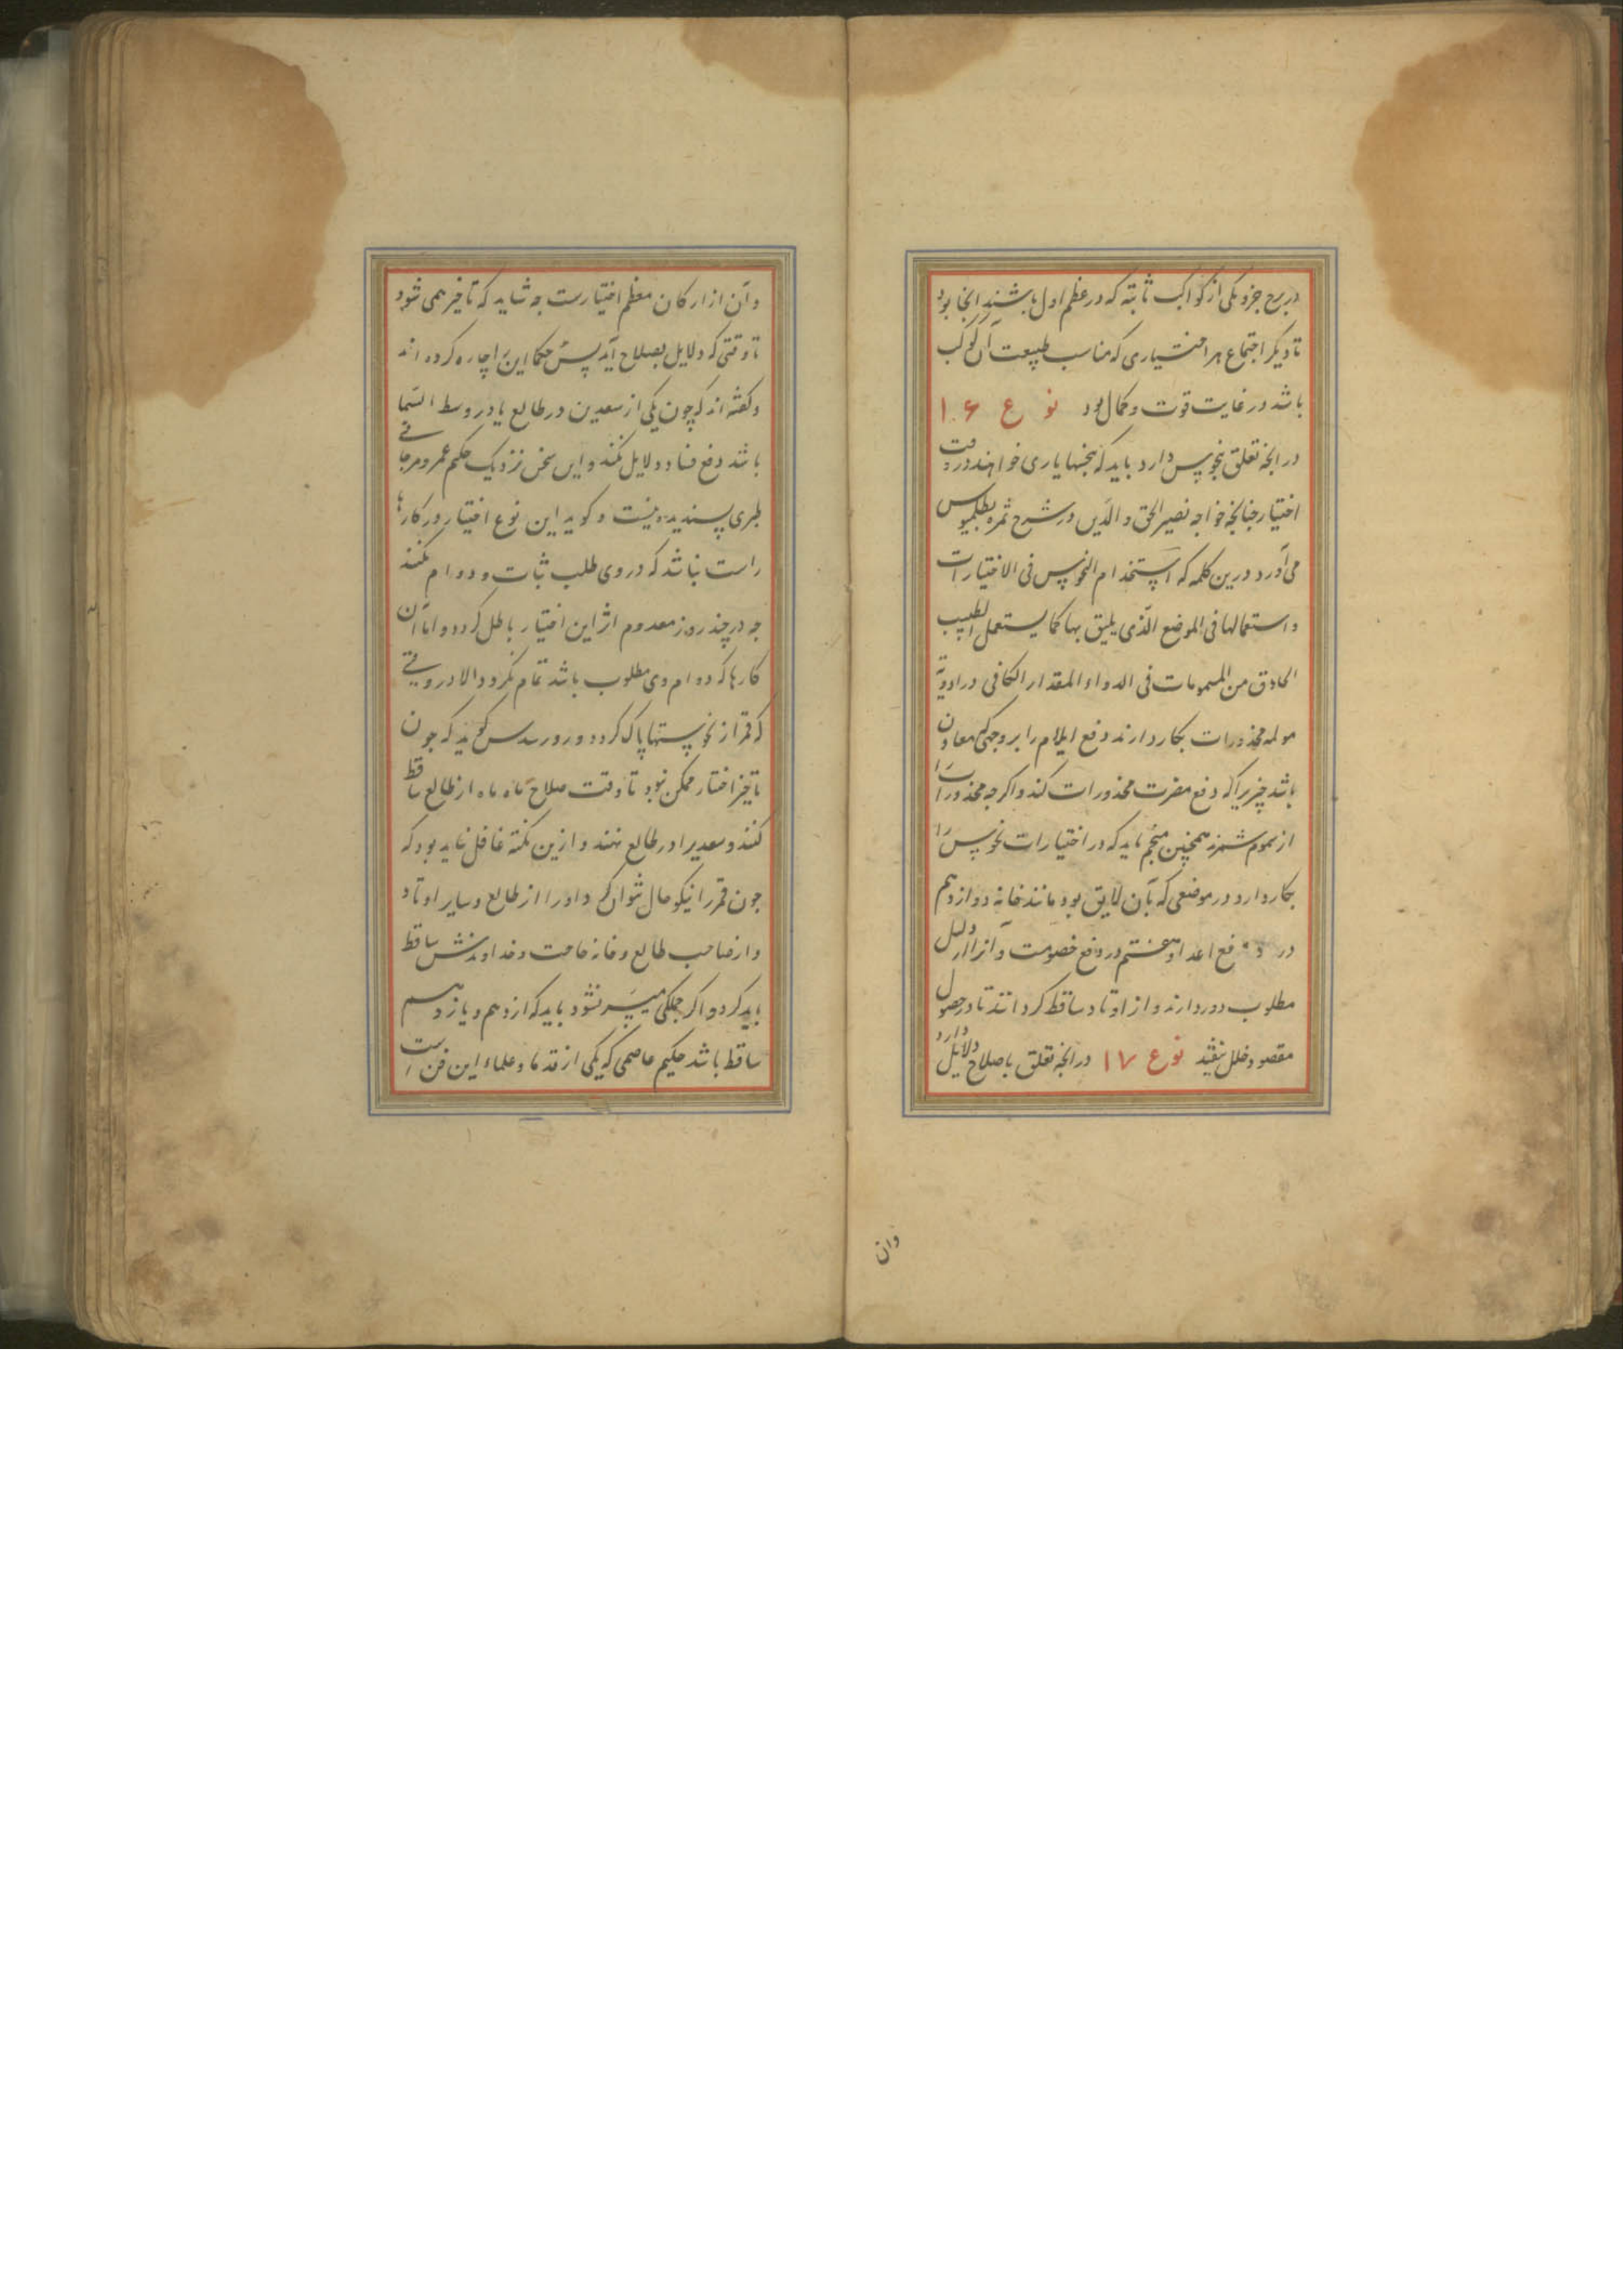 در برج جزو یکی از کواکب ثابته که در عظم اول باشند آنجا بود
تا دیگر اجتماع هر اختیاری که مناسب طبیعت آن کوکب
باشد در غایت قوت و کمال بود نوع ۱۶
در انچه تعلق بنحوس دارد باید که بنحسها یاری خواهند در وقت
اختیار چنانچه خواجه نصیر الحق و الدین در شرح ثمره بطلمیوس
می آورد درین کلمه که استخدام النحوس فی الاختیارات
و استعمالها فی الموضع الذی یلیق بها کما یستعمل الطبیب
الحاذق من المسمومات فی الدواء المقدار الکافی در ادویه
مولمه مخدورات بکار دارند دفع ایلام را بر وجهی که معاون
باشد چیزیرا که دفع مضرت مخدورات کند و اگر چه مخدورات را
از سموم شمرند همچنین منجم باید که در اختیارات نحوس را
بکار دارد در موضعی که بآن لایق بود مانند خانه دوازدهم
در دفع اعدا و هفتم در دفع خصومت و آنرا از دلیل
مطلوب دور دارند و از اوتاد ساقط گردانند تا در حصول
مقصود خلل نیفتد نوع ۱۷ در انچه تعلق باصلاح دلایل دارد
وان
و آن از ارکان معظم اختیارست چه شاید که تاخیر همی شود
تا وقتی که دلایل بصلاح آید پس حکما این را چاره کرده اند
و گفته اند که چون یکی از سعدین در طالع یا در وسط السما
باشد دفع فساد دلایل بکند و این سخن نزدیک حکیم عمر و مرجانی
طبری پسندیده نیست و گوید این نوع اختیار در کارها
راست نباشد که در وی طلب ثبات و دوام بکنند
چه در چند روز معدوم اثر این اختیار باطل گردد و اما آن
کارها که دوام وی مطلوب باشد تمام نگردد الا در وقتی
که قمر از نحوستها پاک گردد و گوید که چون
تاخیر اختیار ممکن نبود تا وقت صلاح ماه ماه از طالع ساقط
کنند و سعد یرا در طالع نهند و ازین نکته غافل نباید بود که
چون قمر را نیکو حال نتوان کرد او را از طالع و سایر اوتاد
و از صاحب طالع و خانه حاجت و خداوندش ساقط
باید کرد و اگر جملگی میسر نشود باید که از دهم و یازدهم
ساقط باشد حکیم عاصمی که یکی از قدما و علماء این فن است